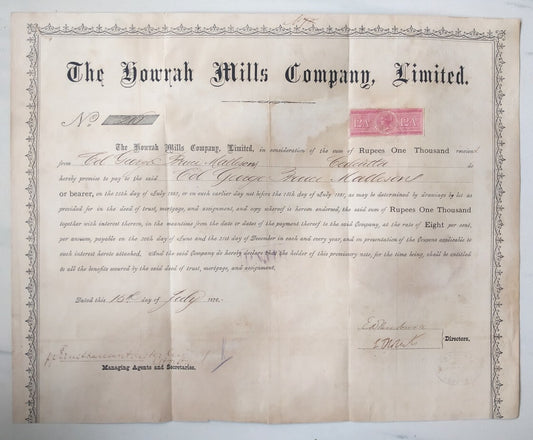 The Howrah Mills Company, Limited.
No.
12 As 12 As
The Howrah Mills Company, Limited, in consideration of the sum of Rupees One Thousand received
from Col George Calcutta do
hereby promise to pay to the said Col George
or bearer, on the 15th day of July 1887, or on such earlier day not before the 15th day of July 1881, as may be determined by drawings to be as
provided for in the deed of trust, mortgage, and assignment, and copy whereof is hereon endorsed, the said sum of Rupees One Thousand
together with interest thereon, in the meantime from the date or dates of the payment thereof to the said Company, at the rate of Eight per cent.
per annum, payable on the 30th day of June and the 31st day of December in each and every year, and in presentation of the Coupons applicable to
each interest hereto attached. And the said Company do hereby declare that the holder of this promissory note, for the time being, shall be entitled
to all the benefits secured by the said deed of trust, mortgage, and assignment.
Dated this 15th day of July
Directors.
Managing Agents and Secretaries.